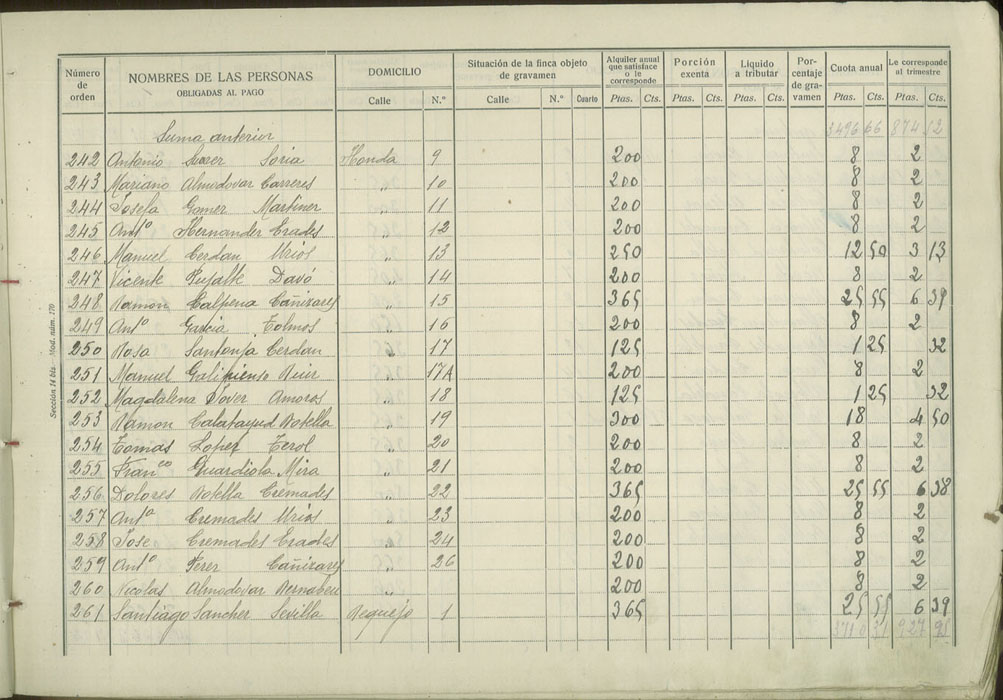 Número de orden | NOMBRES DE LAS PERSONAS OBLIGADAS AL PAGO | DOMICILIO | Situación de la finca objeto de gravamen | Alquiler anual que satisface o le corresponde | Porción exenta | Líquido a tributar | Por-centaje de gra-vamen | Cuota anual | Le corresponde al trimestre
Calle | N.º | Calle | N.º | Cuarto | Ptas. | Cts. | Ptas. | Cts. | Ptas. | Cts. | Ptas. | Cts. | Ptas. | Cts.
Suma anterior 3496 66 874 52
242 Antonio Soria Honda 9 200 8 2
243 Mariano Almodovar Carreres " 10 200 8 2
244 Josefa Gomez Martinez " 11 200 8 2
245 Antº Hernandez Erades " 12 200 8 2
246 Manuel Cerdan Urios " 13 250 12 50 3 13
247 Vicente Pujalte Davó " 14 200 8 2
248 Ramon Calpena Cañizares " 15 365 25 55 6 39
249 Antº Garcia Tolmos " 16 200 8 2
250 Rosa Santonja Cerdan " 17 125 1 25 32
251 Manuel Galipienso " 17A 200 8 2
252 Magdalena Jover Amoros " 18 125 1 25 32
253 Ramon Calatayud Botella " 19 300 18 4 50
254 Tomas Lopez Terol " 20 200 8 2
255 Franco Guardiola Mira " 21 200 8 2
256 Dolores Botella Cremades " 22 365 25 55 6 38
257 Antº Cremades Urios " 23 200 8 2
258 Jose Cremades Erades " 24 200 8 2
259 Antº Perez Cañizares " 26 200 8 2
260 Nicolas Almodovar Bernabeu " 200 8 2
261 Santiago Sanchez Sevilla Requejo 1 365 25 55 6 39
3710 31 927 95
Sección 14 bis. - Mod. núm. 170